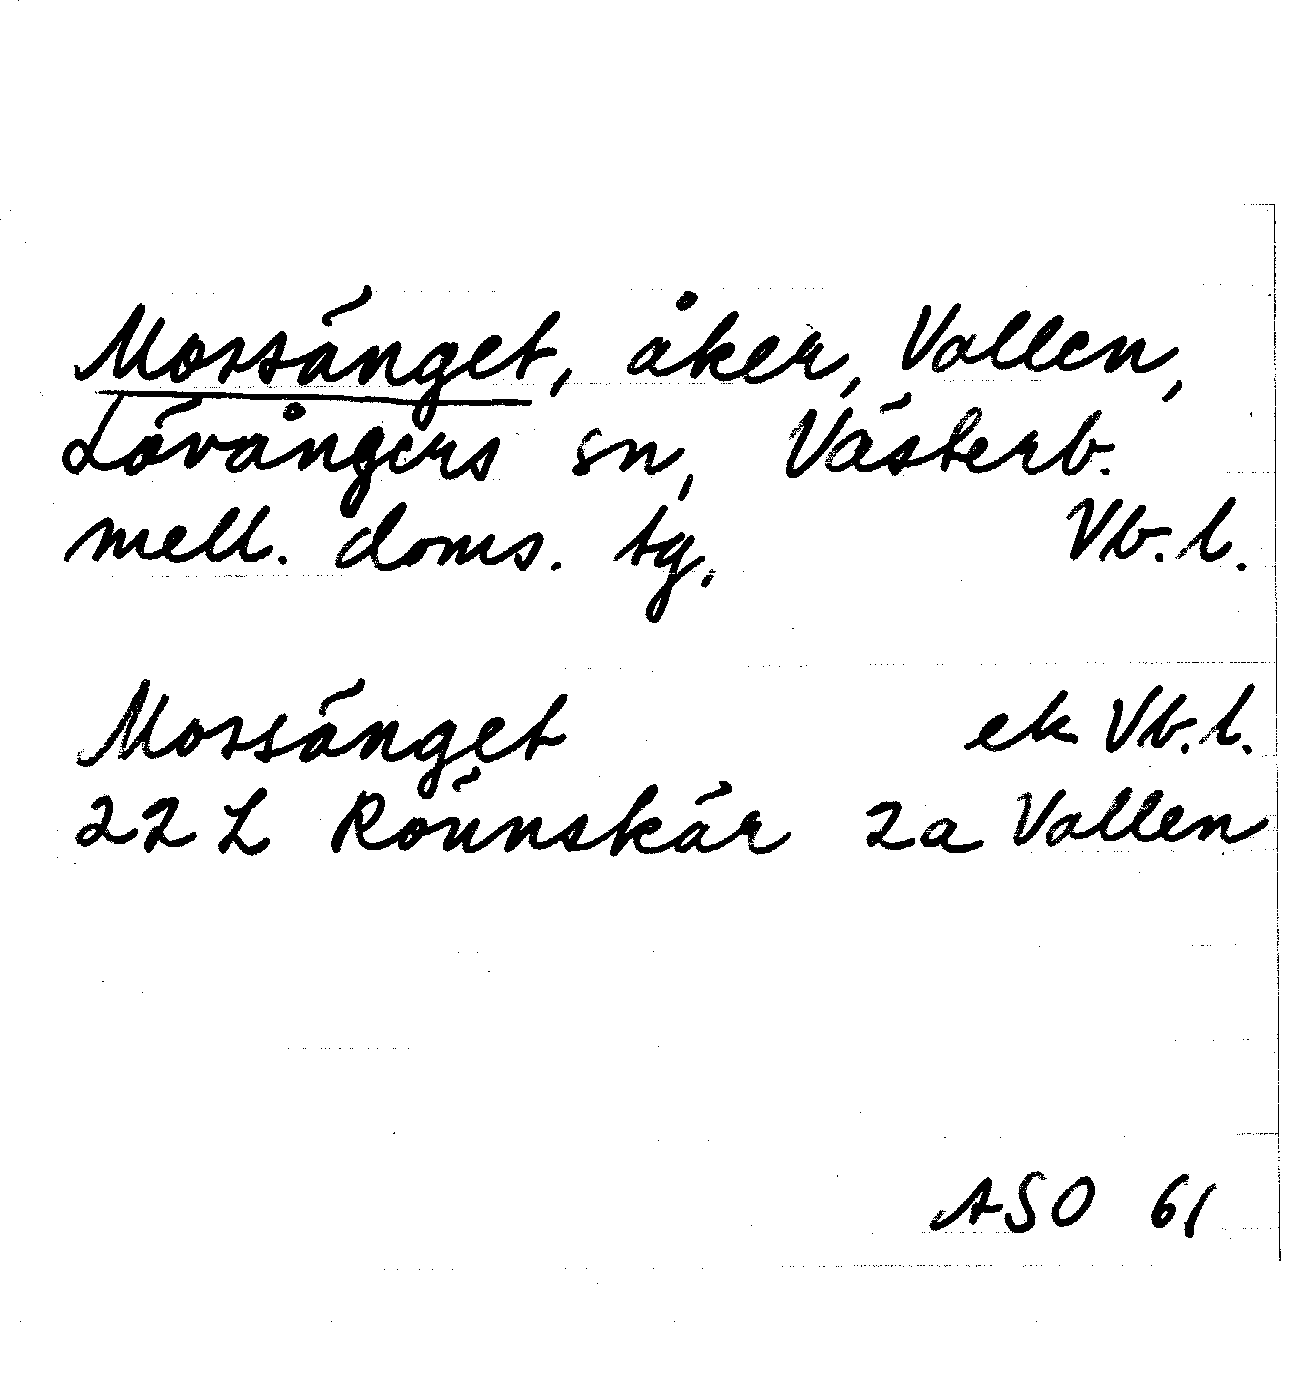 Mossänget, åker, Vallen,
Lövångers sn, Västerb.
mell. doms. tg. Vb. l.
Mossänget ek Vb. l.
22 L Rönnskär 2a Vallen
ASO 61